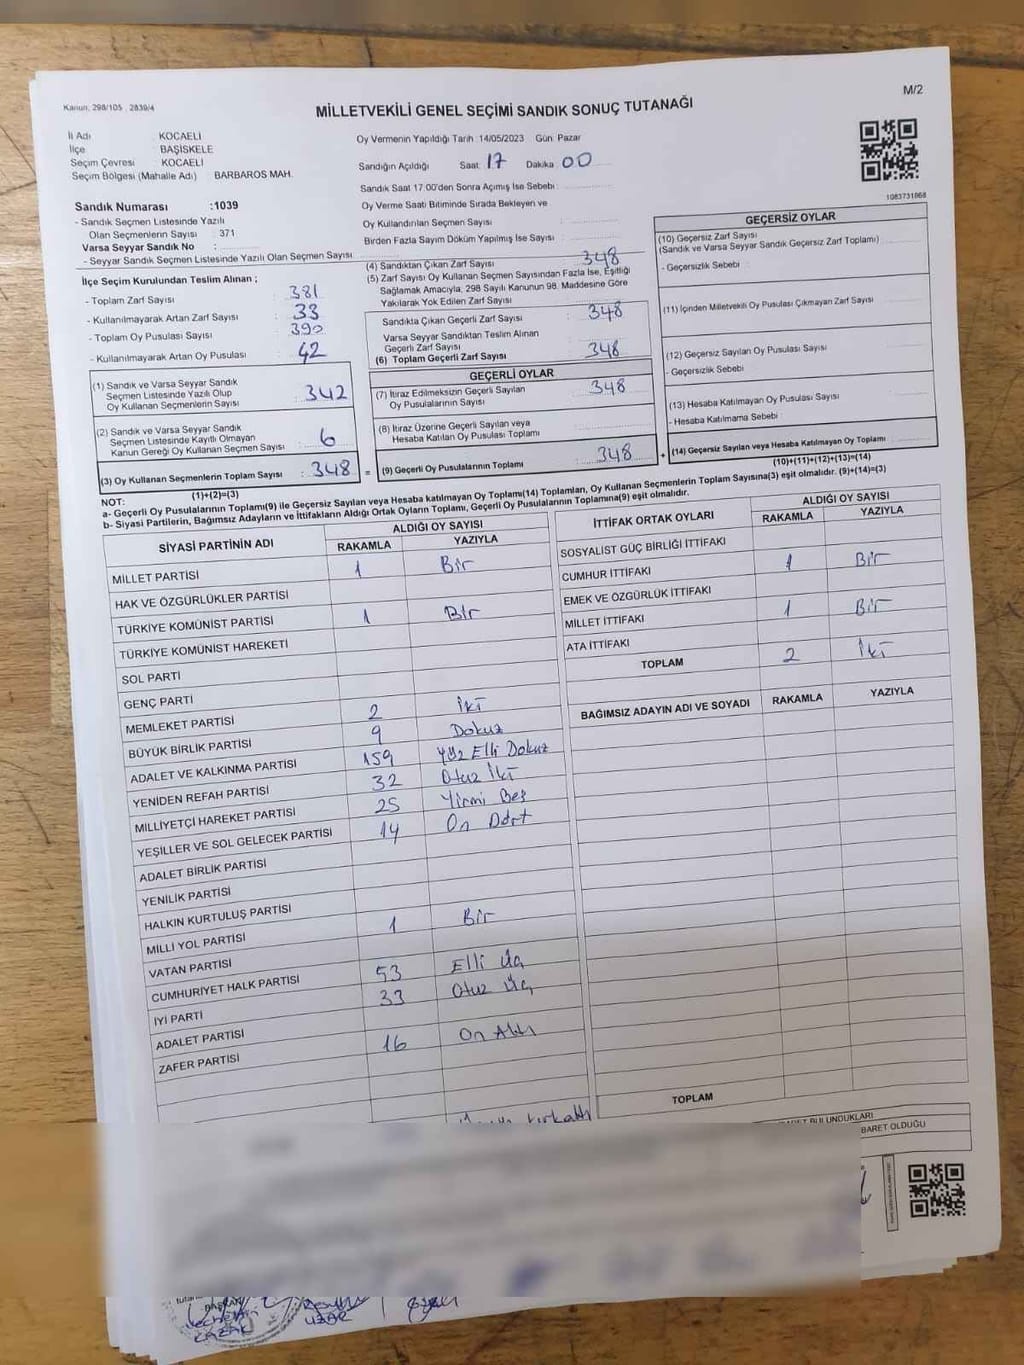 Kanun: 298/105 , 2839/4
M/2
MİLLETVEKİLİ GENEL SEÇİMİ SANDIK SONUÇ TUTANAĞI
İl Adı : KOCAELİ
İlçe : BAŞİSKELE
Seçim Çevresi : KOCAELİ
Seçim Bölgesi (Mahalle Adı) BARBAROS MAH.
Sandık Numarası :1039
- Sandık Seçmen Listesinde Yazılı
Olan Seçmenlerin Sayısı : 371
Varsa Seyyar Sandık No :
- Seyyar Sandık Seçmen Listesinde Yazılı Olan Seçmen Sayısı
Oy Vermenin Yapıldığı Tarih :14/05/2023 Gün: Pazar
Sandığın Açıldığı Saat: 17 Dakika 00
Sandık Saat 17:00'den Sonra Açımış İse Sebebi :
Oy Verme Saati Bitiminde Sırada Bekleyen ve
Oy Kullandırılan Seçmen Sayısı :
Birden Fazla Sayım Döküm Yapılmış İse Sayısı :
1083731868
İlçe Seçim Kurulundan Teslim Alınan ;
- Toplam Zarf Sayısı : 381
- Kullanılmayarak Artan Zarf Sayısı : 33
- Toplam Oy Pusulası Sayısı : 390
- Kullanılmayarak Artan Oy Pusulası : 42
(1) Sandık ve Varsa Seyyar Sandık
Seçmen Listesinde Yazılı Olup
Oy Kullanan Seçmenlerin Sayısı : 342
(2) Sandık ve Varsa Seyyar Sandık
Seçmen Listesinde Kayıtlı Olmayan
Kanun Gereği Oy Kullanan Seçmen Sayısı : 6
(3) Oy Kullanan Seçmenlerin Toplam Sayısı : 348 =
(1)+(2)=(3)
(4) Sandıktan Çıkan Zarf Sayısı : 348
(5) Zarf Sayısı Oy Kullanan Seçmen Sayısından Fazla İse, Eşitliği
Sağlamak Amacıyla, 298 Sayılı Kanunun 98. Maddesine Göre
Yakılarak Yok Edilen Zarf Sayısı :
Sandıkta Çıkan Geçerli Zarf Sayısı : 348
Varsa Seyyar Sandıktan Teslim Alınan
Geçerli Zarf Sayısı :
(6) Toplam Geçerli Zarf Sayısı : 348
GEÇERLİ OYLAR
(7) İtiraz Edilmeksizin Geçerli Sayılan
Oy Pusulalarının Sayısı : 348
(8) İtiraz Üzerine Geçerli Sayılan veya
Hesaba Katılan Oy Pusulası Toplamı :
(9) Geçerli Oy Pusulalarının Toplamı : 348 +
GEÇERSİZ OYLAR
(10) Geçersiz Zarf Sayısı
(Sandık ve Varsa Seyyar Sandık Geçersiz Zarf Toplamı)
- Geçersizlik Sebebi :
(11) İçinden Milletvekili Oy Pusulası Çıkmayan Zarf Sayısı
(12) Geçersiz Sayılan Oy Pusulası Sayısı
- Geçersizlik Sebebi
(13) Hesaba Katılmayan Oy Pusulası Sayısı
- Hesaba Katılmama Sebebi :
(14) Geçersiz Sayılan veya Hesaba Katılmayan Oy Toplamı
(10)+(11)+(12)+(13)=(14)
NOT:
a- Geçerli Oy Pusulalarının Toplamı(9) ile Geçersiz Sayılan veya Hesaba katılmayan Oy Toplamı(14) Toplamları, Oy Kullanan Seçmenlerin Toplam Sayısına(3) eşit olmalıdır. (9)+(14)=(3)
b- Siyasi Partilerin, Bağımsız Adayların ve İttifakların Aldığı Ortak Oyların Toplamı, Geçerli Oy Pusulalarının Toplamına(9) eşit olmalıdır.
SİYASİ PARTİNİN ADI ALDIĞI OY SAYISI
RAKAMLA YAZIYLA
MİLLET PARTİSİ 1 Bir
HAK VE ÖZGÜRLÜKLER PARTİSİ
TÜRKİYE KOMÜNİST PARTİSİ 1 Bir
TÜRKİYE KOMÜNİST HAREKETİ
SOL PARTİ
GENÇ PARTİ
MEMLEKET PARTİSİ 2 İki
BÜYÜK BİRLİK PARTİSİ 9 Dokuz
ADALET VE KALKINMA PARTİSİ 159 Yüz Elli Dokuz
YENİDEN REFAH PARTİSİ 32 Otuz İki
MİLLİYETÇİ HAREKET PARTİSİ 25 Yirmi Beş
YEŞİLLER VE SOL GELECEK PARTİSİ 14 On Dört
ADALET BİRLİK PARTİSİ
YENİLİK PARTİSİ
HALKIN KURTULUŞ PARTİSİ
MİLLİ YOL PARTİSİ 1 Bir
VATAN PARTİSİ
CUMHURİYET HALK PARTİSİ 53 Elli Üç
İYİ PARTİ 33 Otuz Üç
ADALET PARTİSİ
ZAFER PARTİSİ 16 On Altı
kırkaltı
İTTİFAK ORTAK OYLARI ALDIĞI OY SAYISI
RAKAMLA YAZIYLA
SOSYALİST GÜÇ BİRLİĞİ İTTİFAKI
CUMHUR İTTİFAKI 1 Bir
EMEK VE ÖZGÜRLÜK İTTİFAKI
MİLLET İTTİFAKI 1 Bir
ATA İTTİFAKI
TOPLAM 2 İki
BAĞIMSIZ ADAYIN ADI VE SOYADI RAKAMLA YAZIYLA
TOPLAM
BULUNDUKLARI
BARET OLDUĞU
BAŞKAN
UZAR